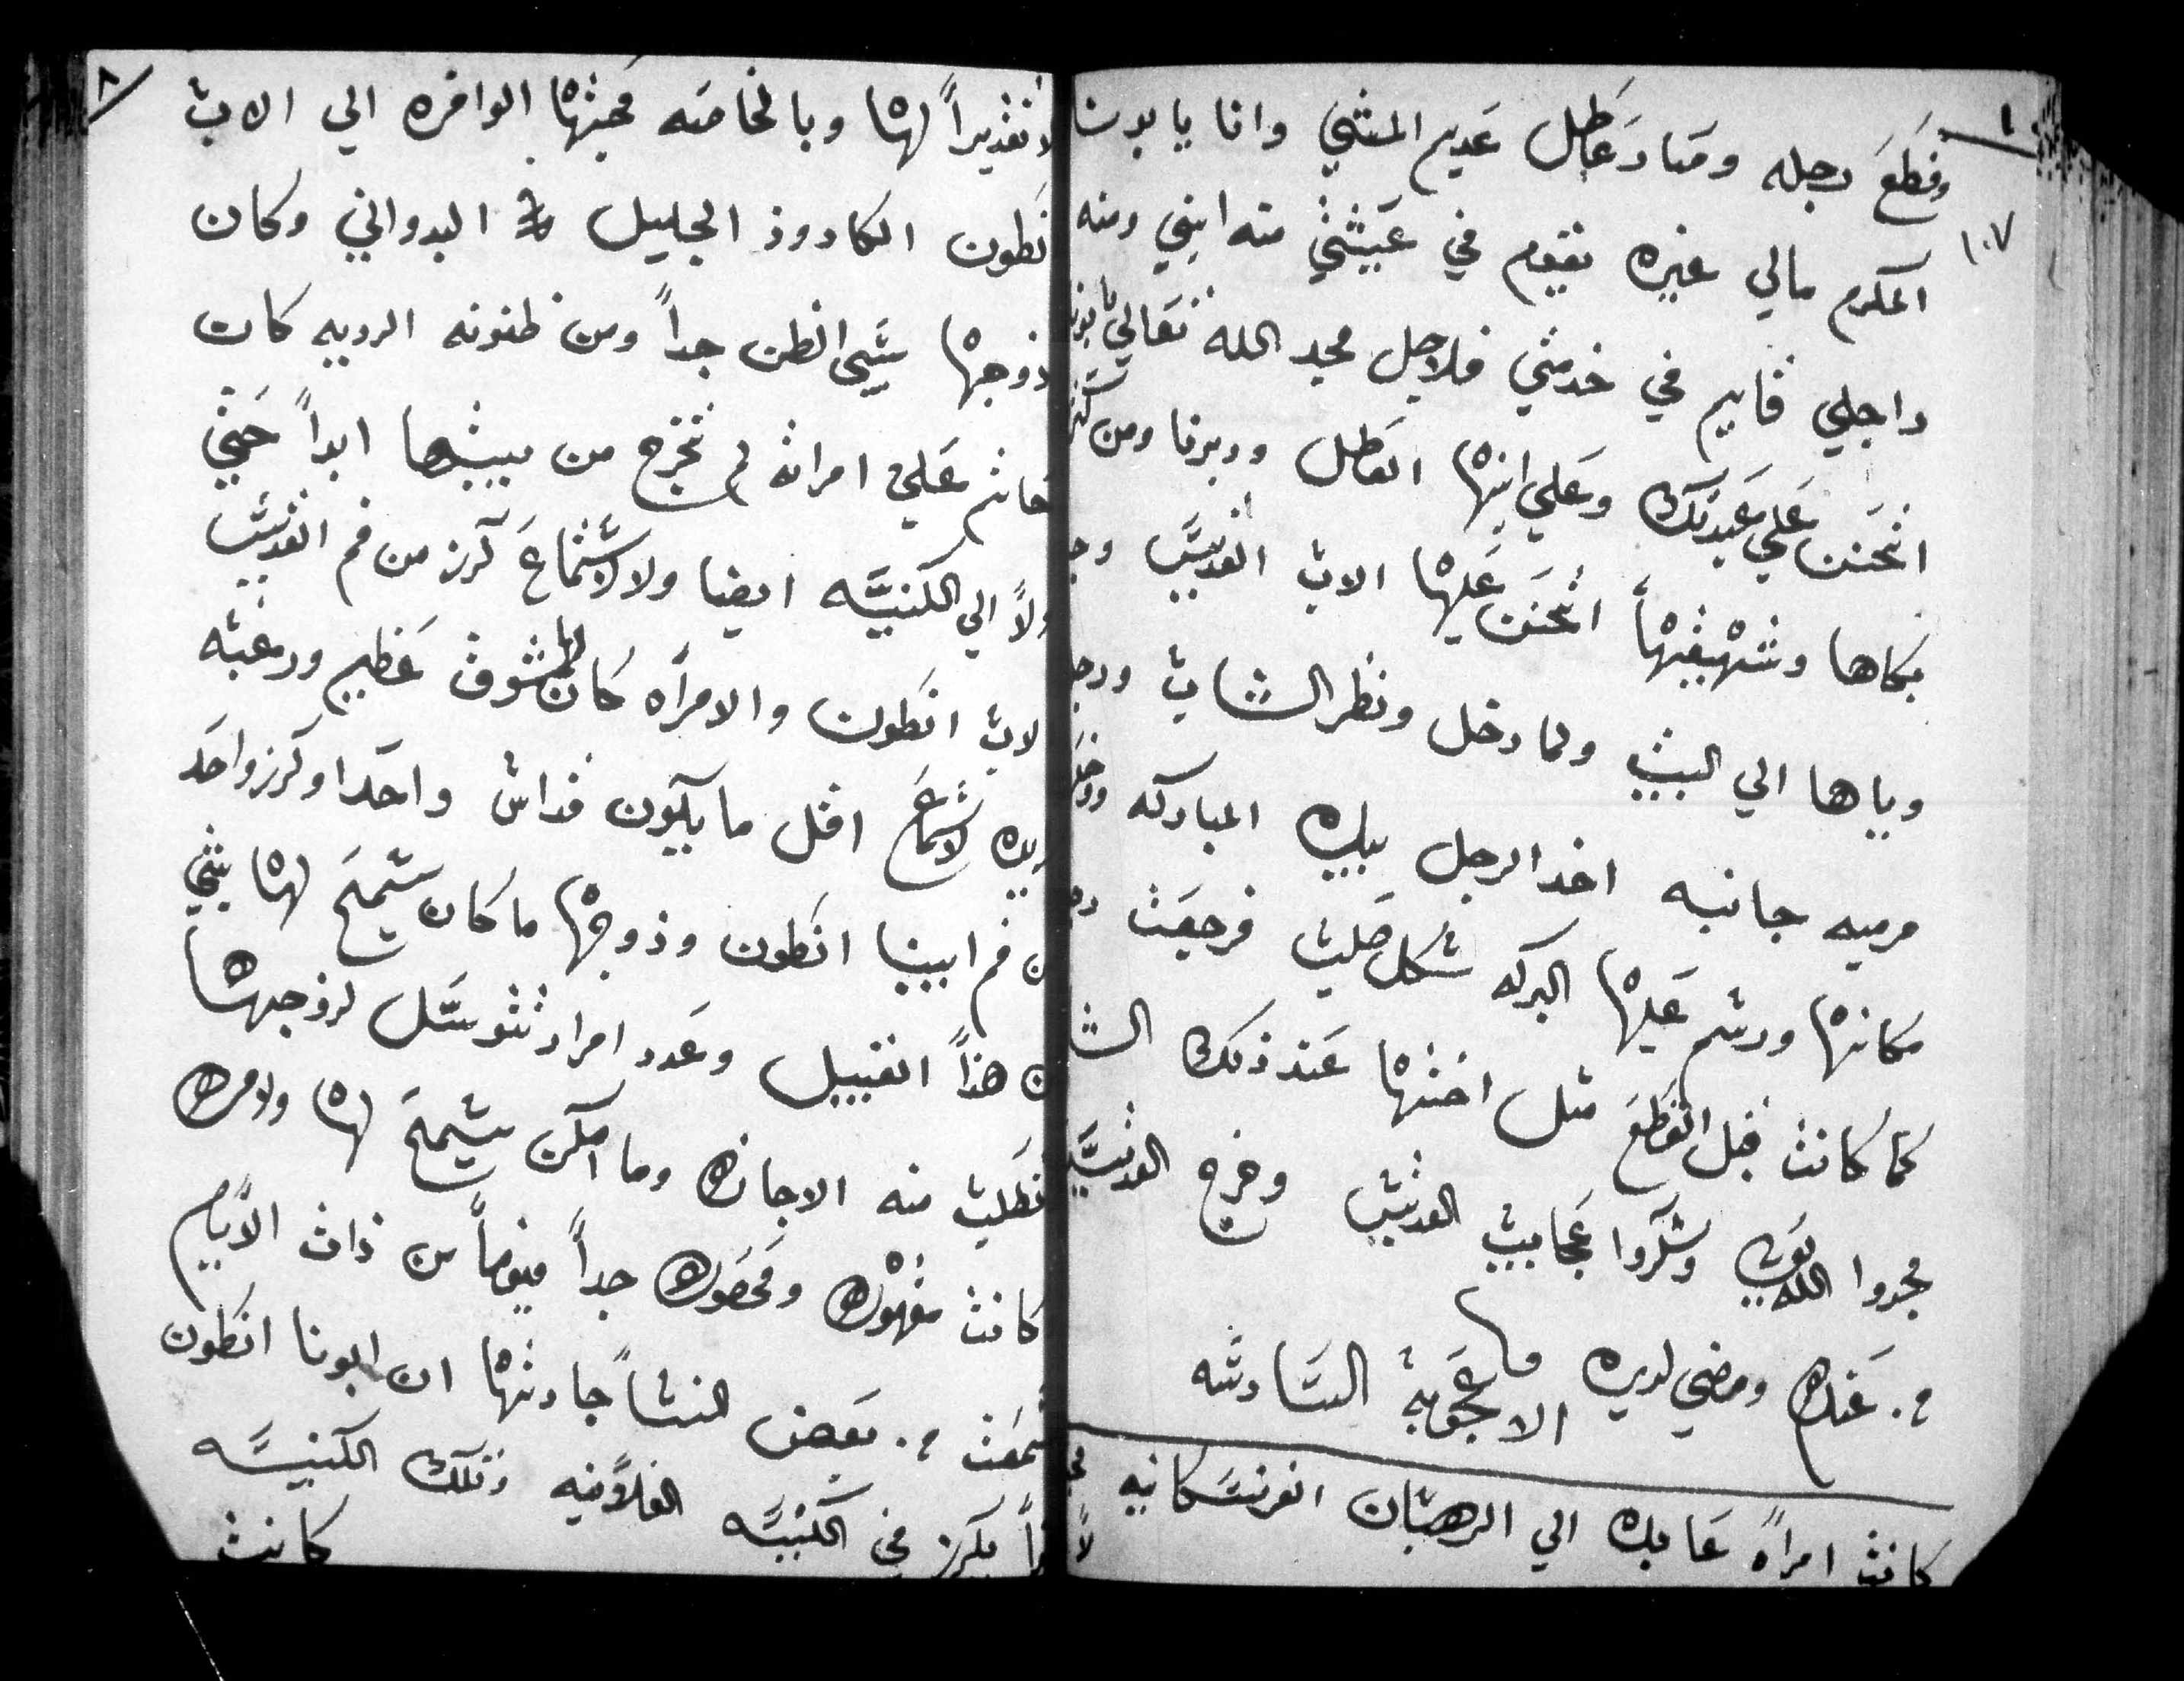 وقطع رجله وصار عاطل عديم المشي وانا يا بونا
١٠٧
المكرم مالي غيره يقوم في عيشتي منه ابني ومنه
راجلي قايم في خدمتي فلاجل مجد الله تعالي يابونا
اتحنن علي عبدتك وعلي ابنها العاطل ودبرنا ومن كتر
بكاها وشهيقها اتحنن عليها الاب القديس
وياها الي البيت ولما دخل ونظر الشاب
مرميه جانبه اخد الرجل بيده المباركه
مكانها ورشم عليها البركه شكل صليب فرجعت
كما كانت قبل القطع مثل اختها عند ذلك
مجدوا الله وشكروا عجايب القديس وخرج القديس
من عنده ومضي لديره
الاعجوبة السادسه
كانت امراه عابده الي الرهبان الفرنسكانيه
لا تقديراً لها وبالخاصه محبتها الوافره الي الاب
انطون الكاروز الجليل البدواني وكان
زوجها سيئ الظن جداً ومن ظنونه الرديه كان
علي امراته لم تخرج من بيتها ابداً حتي
ولا الي الكنيسه ايضا ولا لاستماع كرز من فم القديس
الاب انطون والامراه كان لها شوق عظيم ورغبه
لاستماع اقل ما يكون قداس واحدا وكرز واحد
من فم ابينا انطون وزوجها ما كان يسمح لها بشي
من هذا القبيل وعدد امرار تتوسل لزوجها
تطلب منه الاجازه وما امكن يسمح لها ولامره
كانت مقهوره ومحصوره جداً فيوماً من ذات الايام
سمعت من بعض النسا جاراتها ان ابونا انطون
يكرز في الكنيسه الفلانيه وتلك الكنيسه
كانت